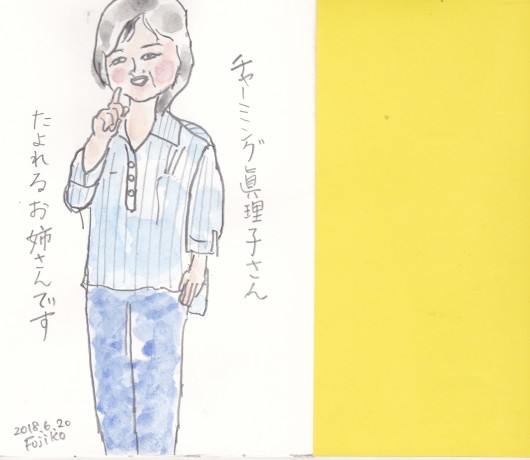 チャーミング眞理子さん
たよれるお姉さんです
2018.6.20
Fujiko